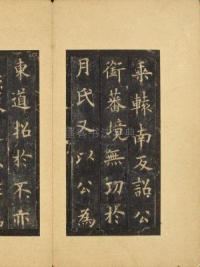 乘轅南反詔公
銜蕃境無功於
月氏又以公為
東道招於不亦